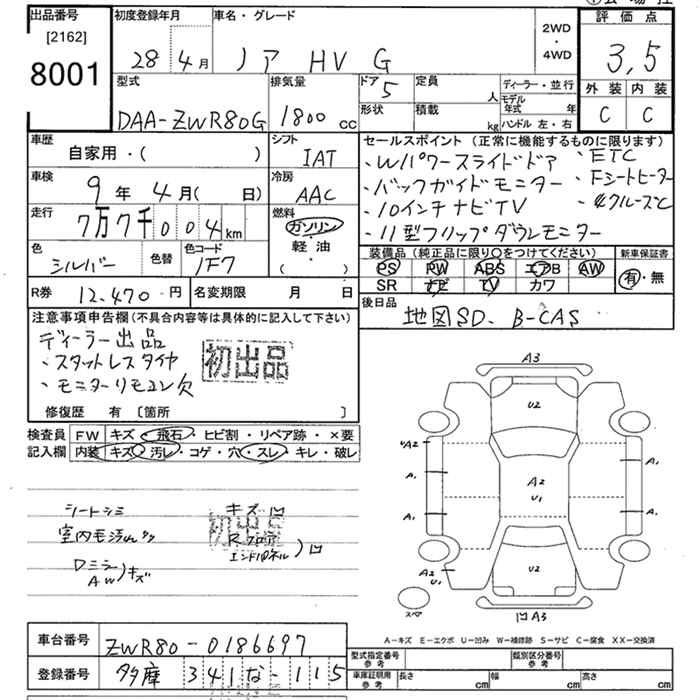 出品番号
[2162]
8001
初度登録年月
28 4月
車名・グレード
ノア HV G
2WD
・
4WD
評価点
3,5
外装 内装
C C
型式
DAA-ZWR80G
排気量
1800 cc
ドア
5
定員
人
形状
積載
kg
ディーラー・並行
モデル年式 年
ハンドル 左・右
車歴
自家用・( )
シフト
IAT
車検
9年 4月( 日)
冷房
AAC
走行
7万7千004km
燃料
ガソリン
軽・油
・( )
色
シルバー
色替
色コード
1F7
R券
12,470円
名変期限 月 日
セールスポイント (正常に機能するものに限ります)
・Wパワースライドドア ・ETC
・バックガイドモニター ・Fシートヒーター
・10インチナビTV ・クルーズC
・11型フリップダウンモニター
装備品 (純正品に限り○をつけてください)
PS PW ABS エアB AW
SR ナビ TV カワ
新車保証書
有・無
後日品
地図SD、B-CAS
注意事項申告欄 (不具合内容等は具体的に記入して下さい)
ディーラー出品
・スタットレスタイヤ
・モニターリモコン欠
初出品
修復歴 有 [箇所 ]
検査員記入欄
FW キズ・飛石・ヒビ割・リペア跡・×要
内装 キズ・汚レ・コゲ・穴・スレ・キレ・破レ
シートシミ
室内モ汚レ
Dミラー
AW
キズ
キズ凹
初出品
エンドパネル
凹
A3
U2
A2
A1
A1
A2
U1
A1
A1
A2
U2
U2
スペア
凹A3
A-キズ E-エクボ U-凹み W-補修跡 S-サビ C-腐食 XX-交換済
車台番号
ZWR80-0186697
登録番号
多摩 341な-115
型式指定番号
参考
類別区分番号
参考
車庫証明用
参考
長さ cm 幅 cm 高さ cm